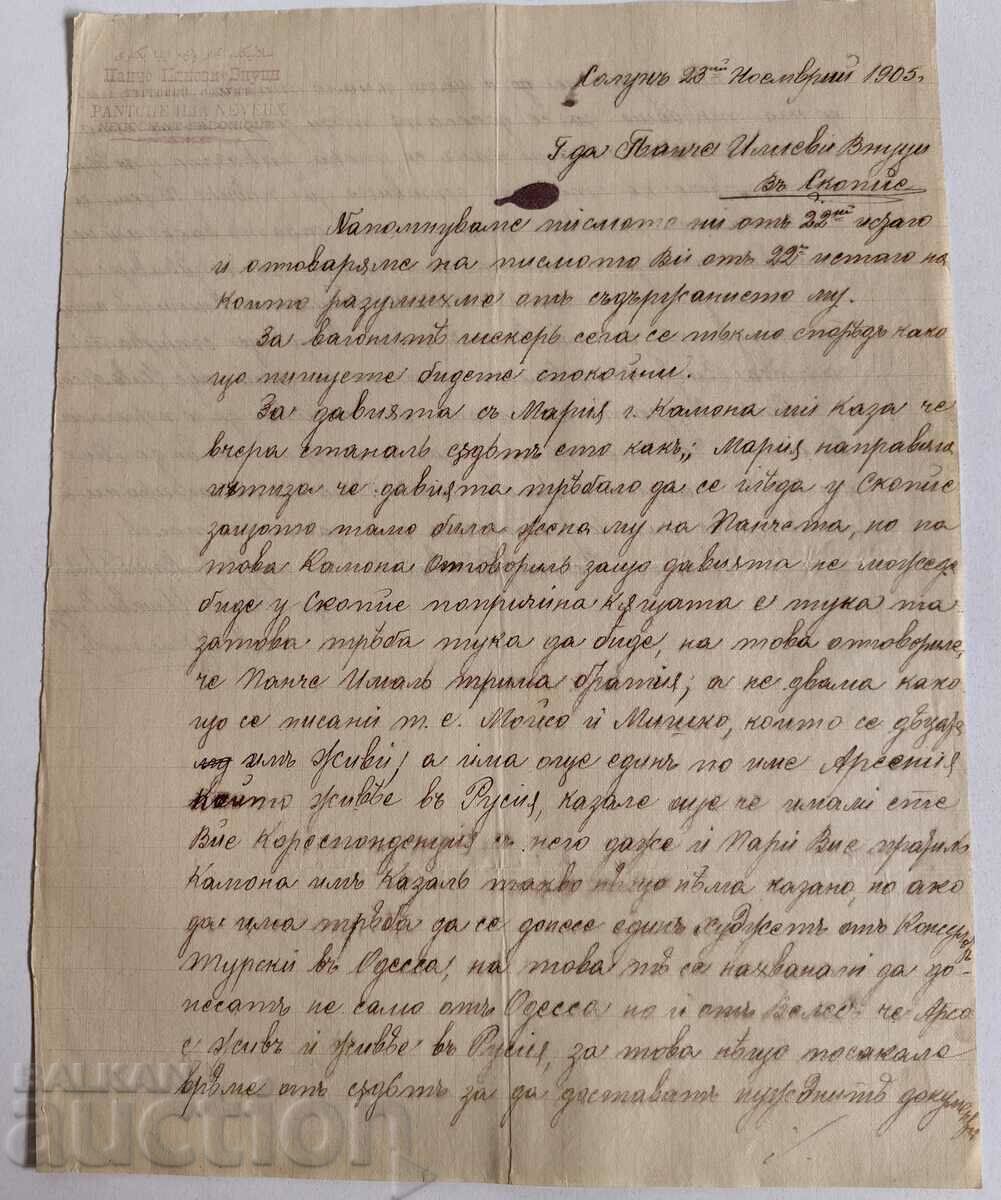 PANTCHE ILIA NEVEUX
Солунъ 23ий Ноемврий 1905г
Г-да Панче Илиеви Внуци
Въ Скопие
Напомнуваме писмото ни отъ 22ий
и отговаряме на писмото Ви отъ 22й истаго на
което разумихме отъ съдържанието му.
За вагонитѣ шекеръ сега се тъкмо споредъ како
що пишуете бидете спокойни.
За давията съ Мария г. Камона ми каза че
вчера станалъ сѫдътъ ето какъ; Мария направила
итиза че давията трѣбало да се глѣда у Скопие
защото тамо била жена му на Панчета, но на
това Камона отговорилъ защо давията не може да
биде у Скопие попричина кѫщата е тука та
затова трѣба тука да биде, на това отговориле,
че Панче ималъ трима братия; а не двама како
що се писани т. е. Мойсо и Мишко, които се дѣцата
имъ живи; а има още единъ по име Арсения
който живѣе въ Русия, казале още че имали сте
Вие кореспонденция съ него даже и пари Вие
Камона имъ казалъ такво нѣщо нѣма казано, но ако
да има трѣба да се донесе единъ худжетъ отъ
Турский въ Одесса, на това тѣ се нахванали да до-
несатъ не само отъ Одесса но и отъ Велесъ че Арсо
е живъ и живѣе въ Русия, за това нѣщо поискале
врѣме отъ сѫдътъ за да доставатъ нужднитѣ
BALKAN
auction